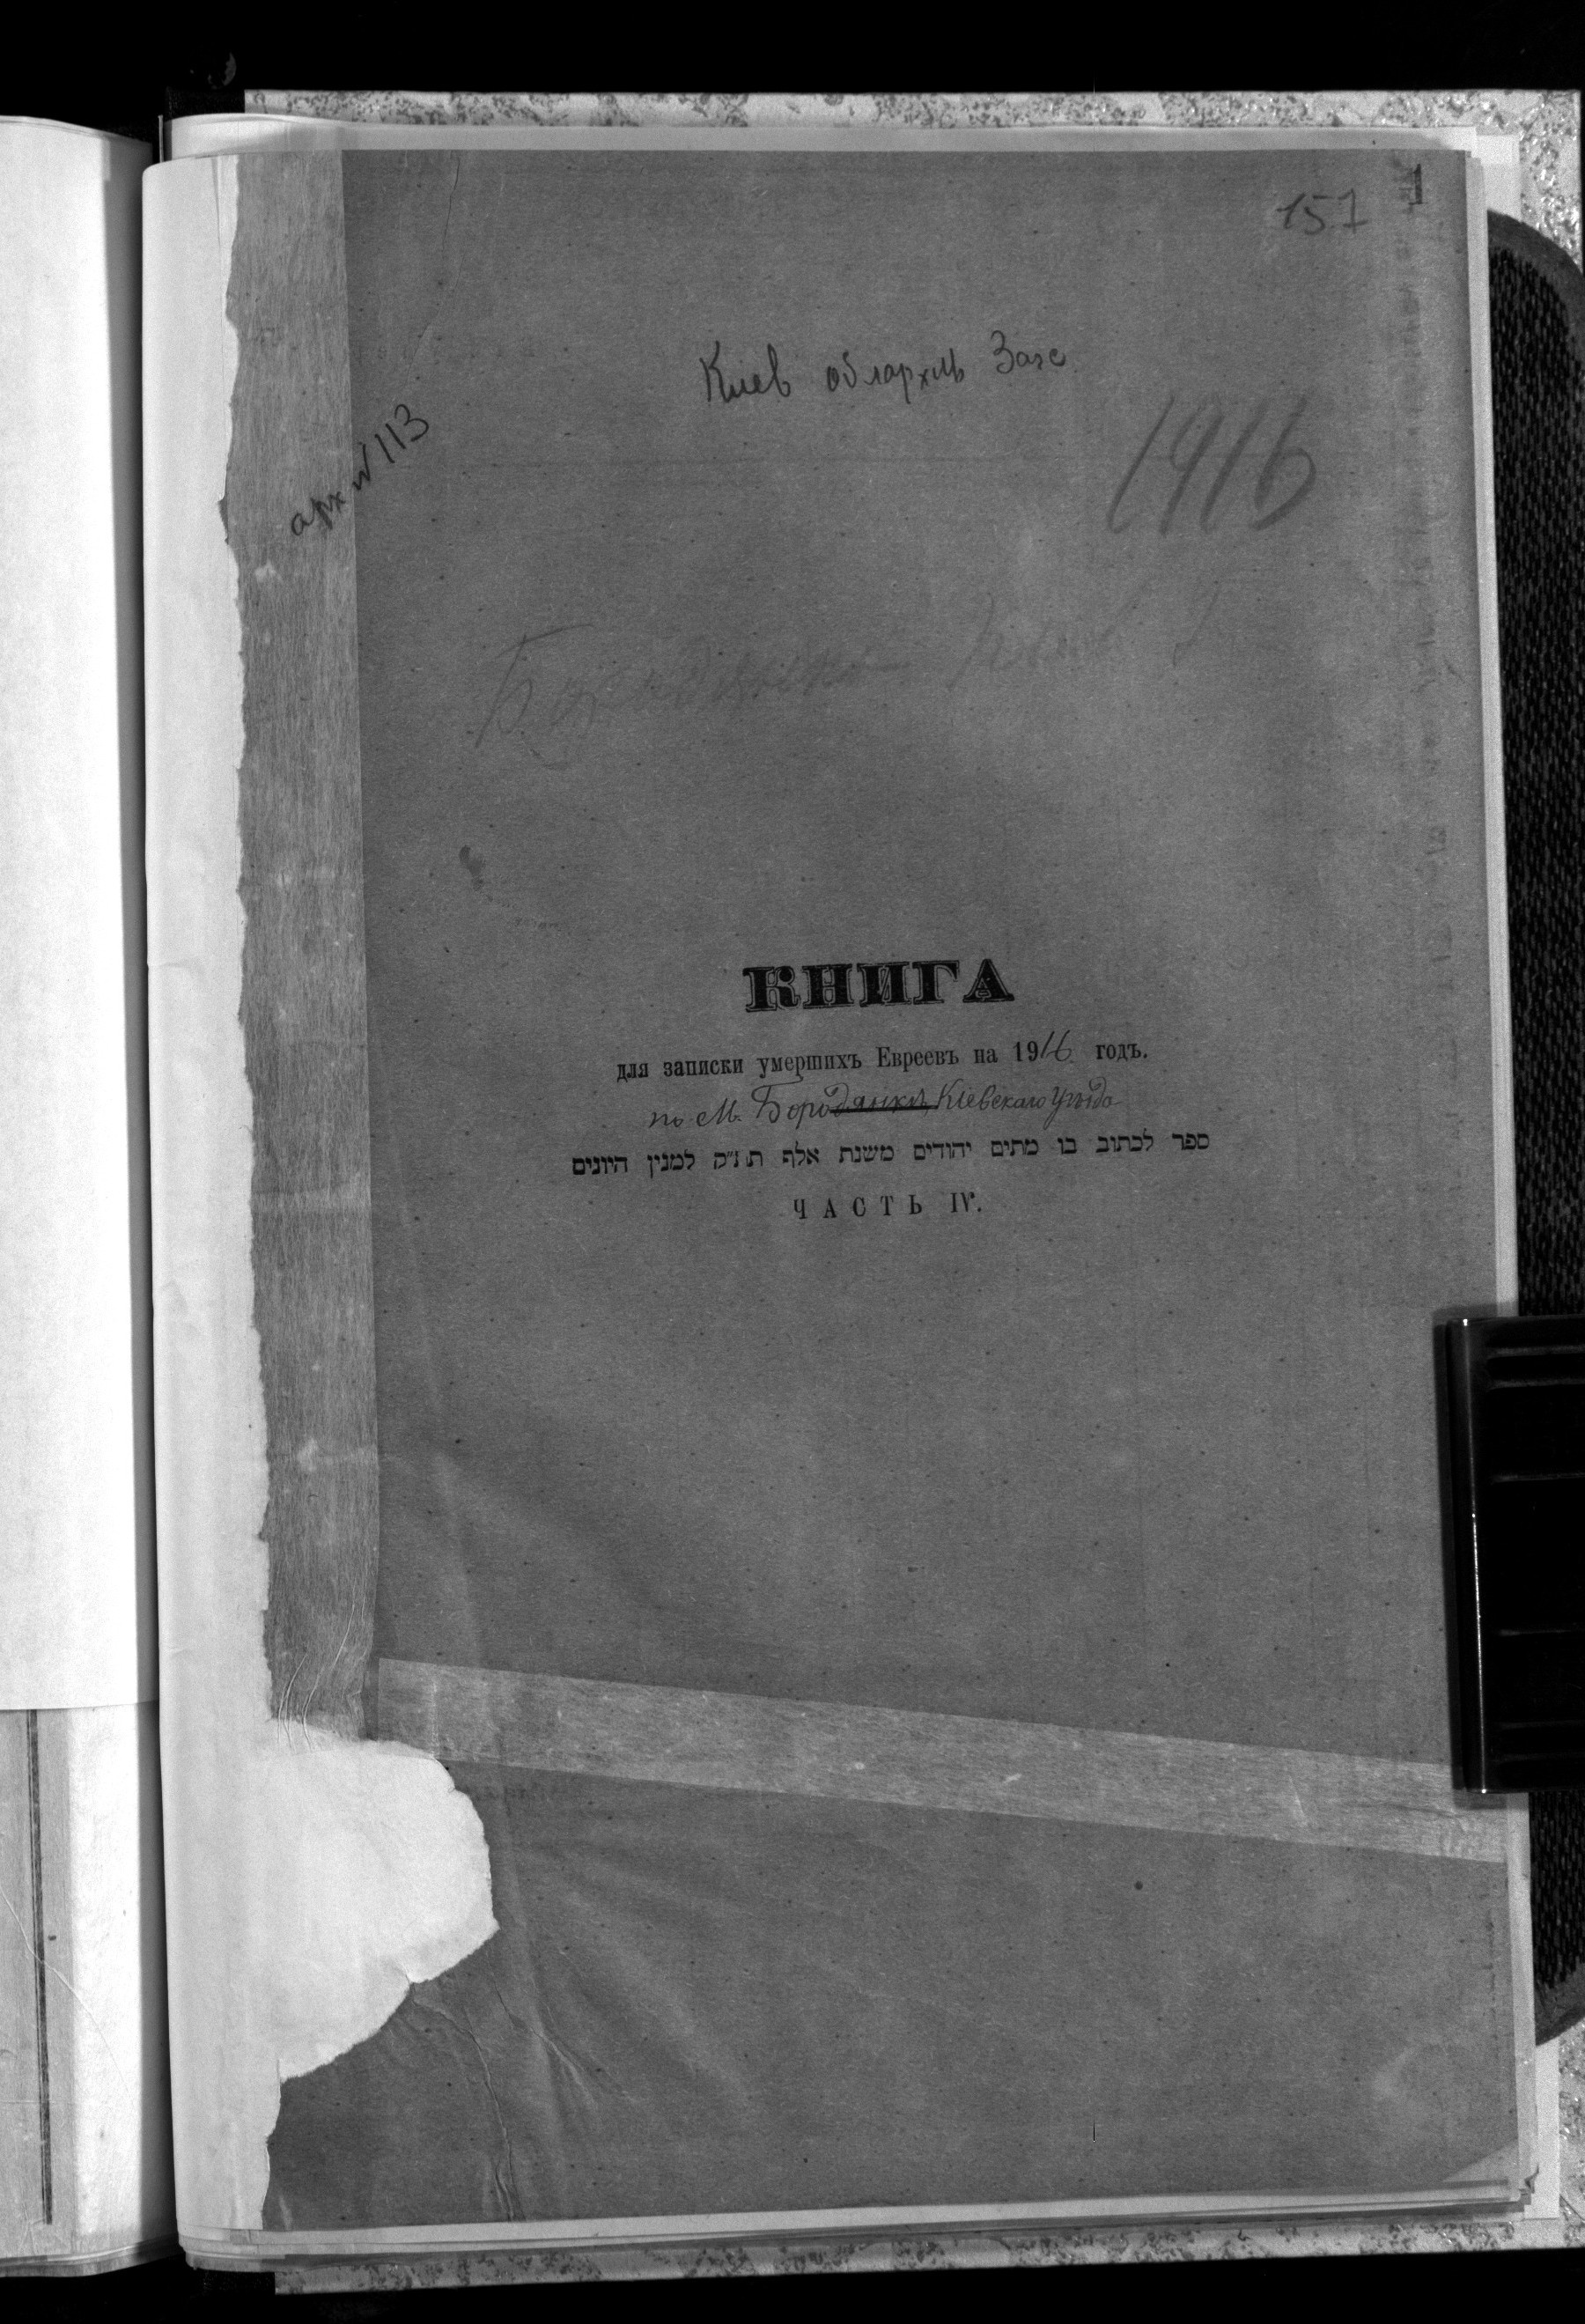 151
Киев облархив Загс
арх №113
1916
Бородянка
КНИГА
для записки умершихъ Евреевъ на 1916 годъ.
по М. Бородянкѣ, Кіевскаго уѣзда
ספר לכתוב בו מתים יהודים משנת אלף תת״ק למנין היונים
ЧАСТЬ IV.